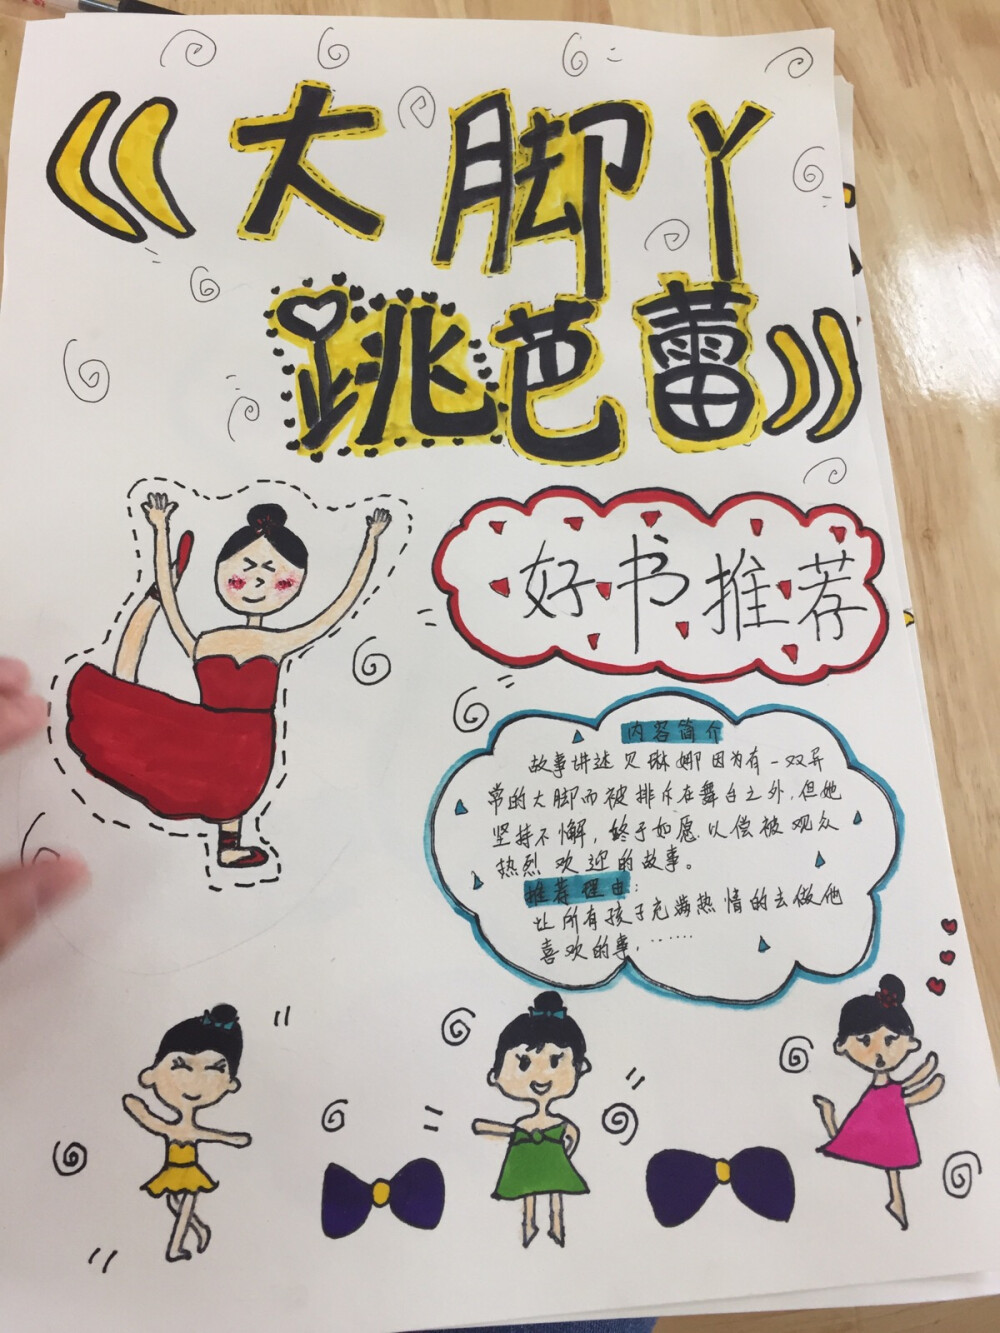 《大脚丫
跳芭蕾》
好书推荐
内容简介
故事讲述贝琳娜因为有一双异
常的大脚而被排斥在舞台之外,但她
坚持不懈,终于如愿以偿被观众
热烈欢迎的故事。
推荐理由:
让所有孩子充满热情的去做他
喜欢的事,······